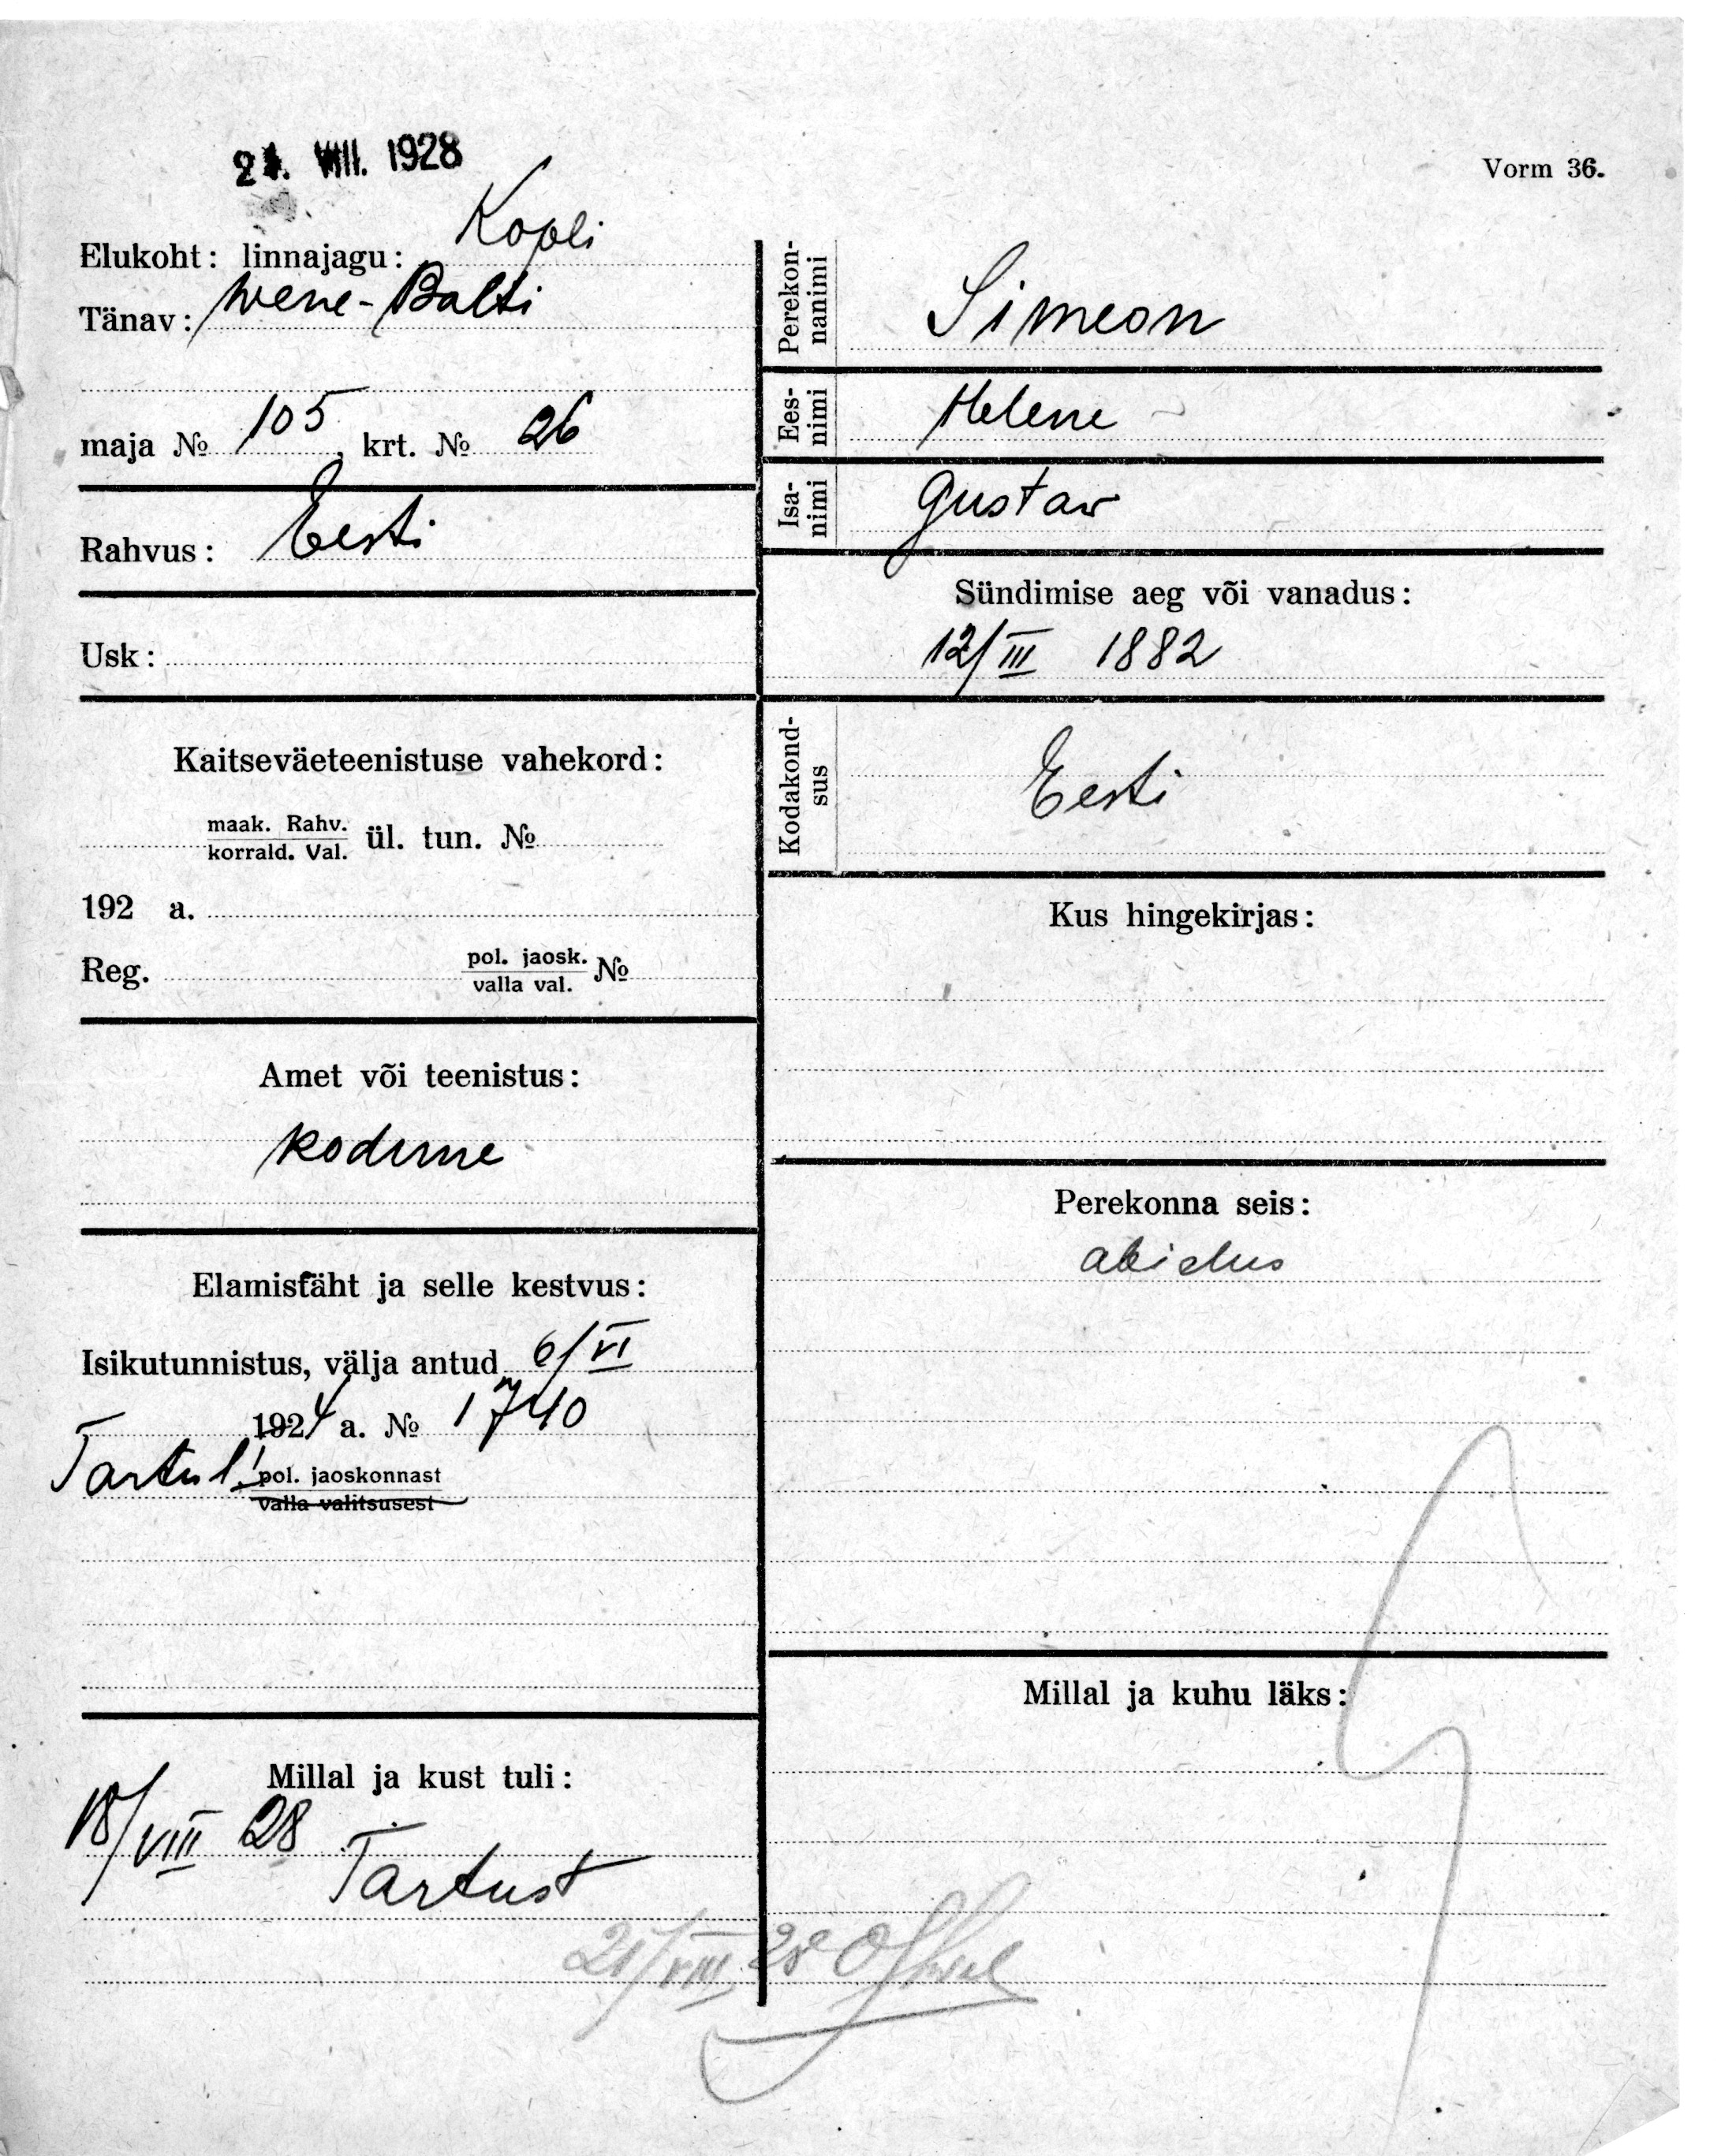 21. VIII. 1928
Vorm 36.
Elukoht: linnajagu: Kopli
Tänav: Wene-Balti
maja № 105, krt. № 26
Rahvus: Eesti
Usk:
Kaitseväeteenistuse vahekord:
maak. Rahv.
korrald. Val. ül. tun. №
192 a.
Reg. pol. jaosk. №
valla val.
Amet või teenistus:
kodune
Elamistäht ja selle kestvus:
Isikutunnistus, välja antud 6/VI
1924 a. № 1740
Tartu I pol. jaoskonnast
valla valitsusest
Millal ja kust tuli:
18/VIII 28
Tartust
21/VIII 28
Perekon-
nanimi Simeon
Ees-
nimi Helene
Isa-
nimi Gustav
Sündimise aeg või vanadus:
12/III 1882
Kodakond-
sus Eesti
Kus hingekirjas:
Perekonna seis:
abielus
Millal ja kuhu läks: